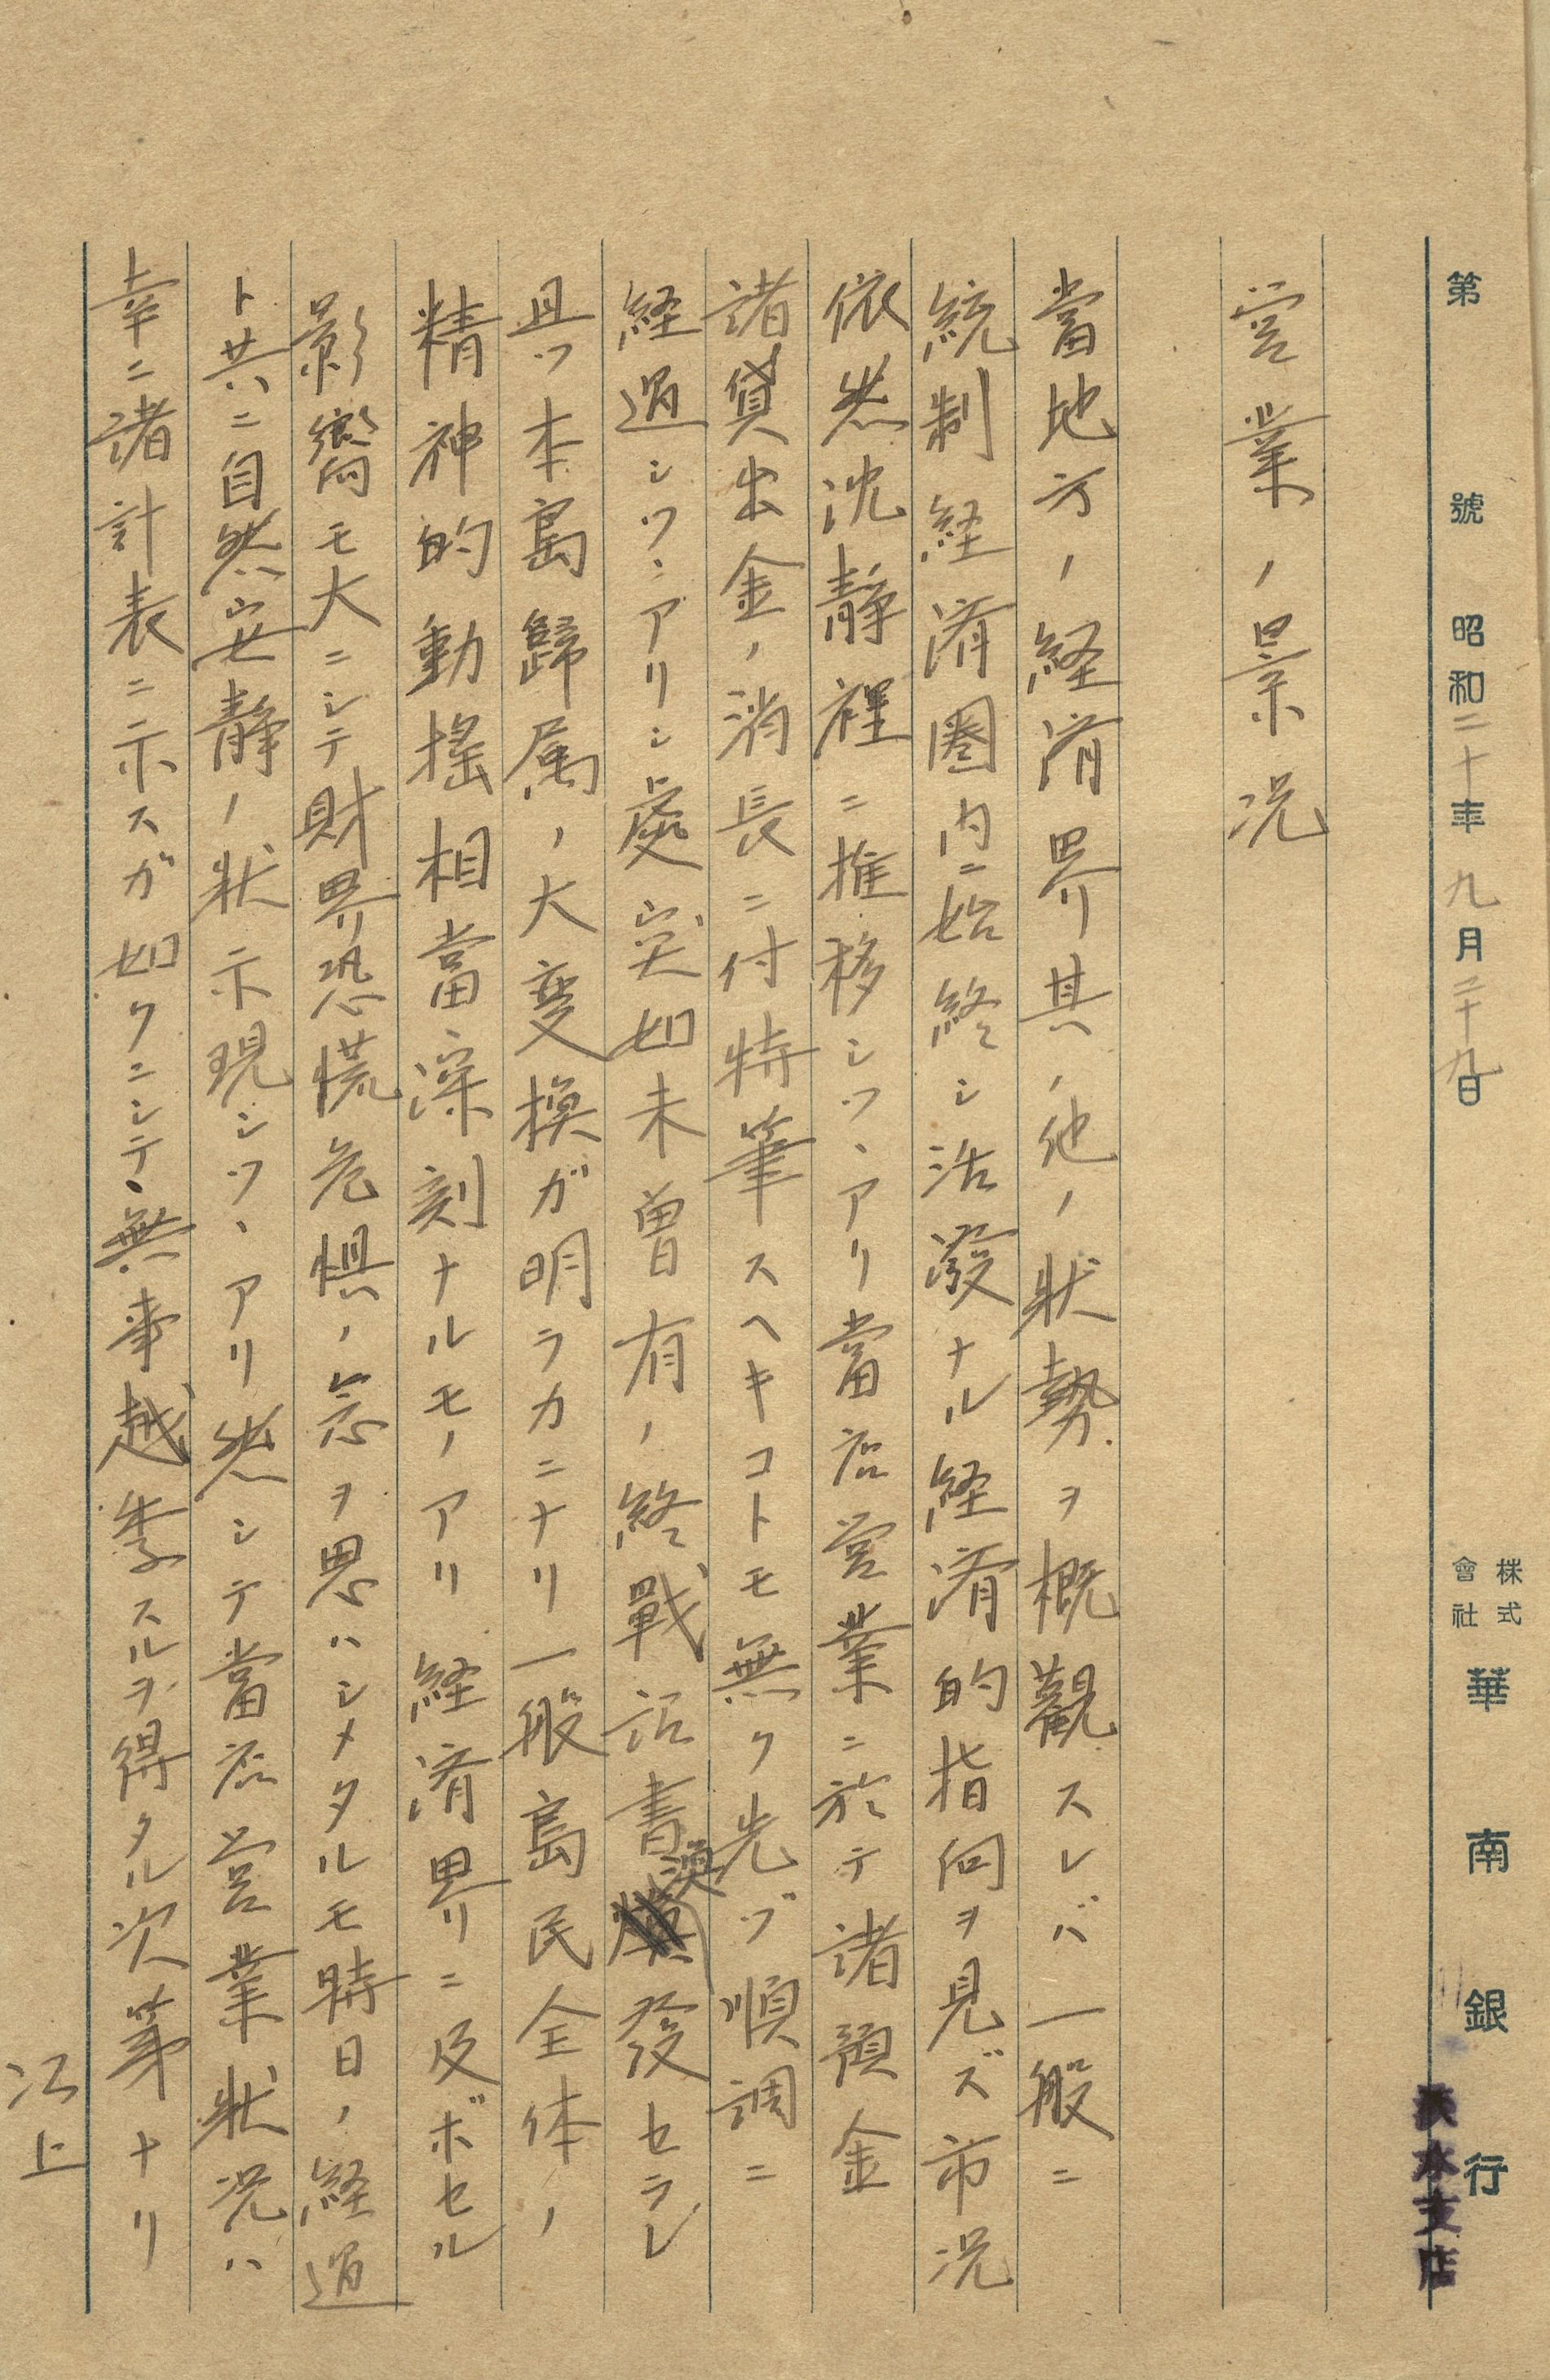 第　號　昭和二十年九月二十九日
株式會社 華南銀行
淡水支店
営業ノ景況
當地方ノ経済界其ノ他ノ狀勢ヲ概觀スレバ一般ニ
統制経済圏内ニ始終シ活潑ナル経済的指向ヲ見ズ市況
依然沈静裡ニ推移シツヽアリ當店営業ニ於テ諸預金
諸貸出金ノ消長ニ付特筆スヘキコトモ無ク先ヅ順調ニ
経過シツヽアリシ處突如未曽有ノ終戰詔書渙發セラレ
且ツ本島歸属ノ大変換ガ明ラカニナリ一般島民全体ノ
精神的動搖相當深刻ナルモノアリ経済界ニ及ボセル
影響モ大ニシテ財界恐慌危惧ノ念ヲ思ハシメタルモ時日ノ経過
ト共ニ自然安静ノ狀示現シツヽアリ然シテ當店営業狀況ハ
幸ニ諸計表ニ示スガ如クニシテ、無事越季スルヲ得タル次第ナリ
以上